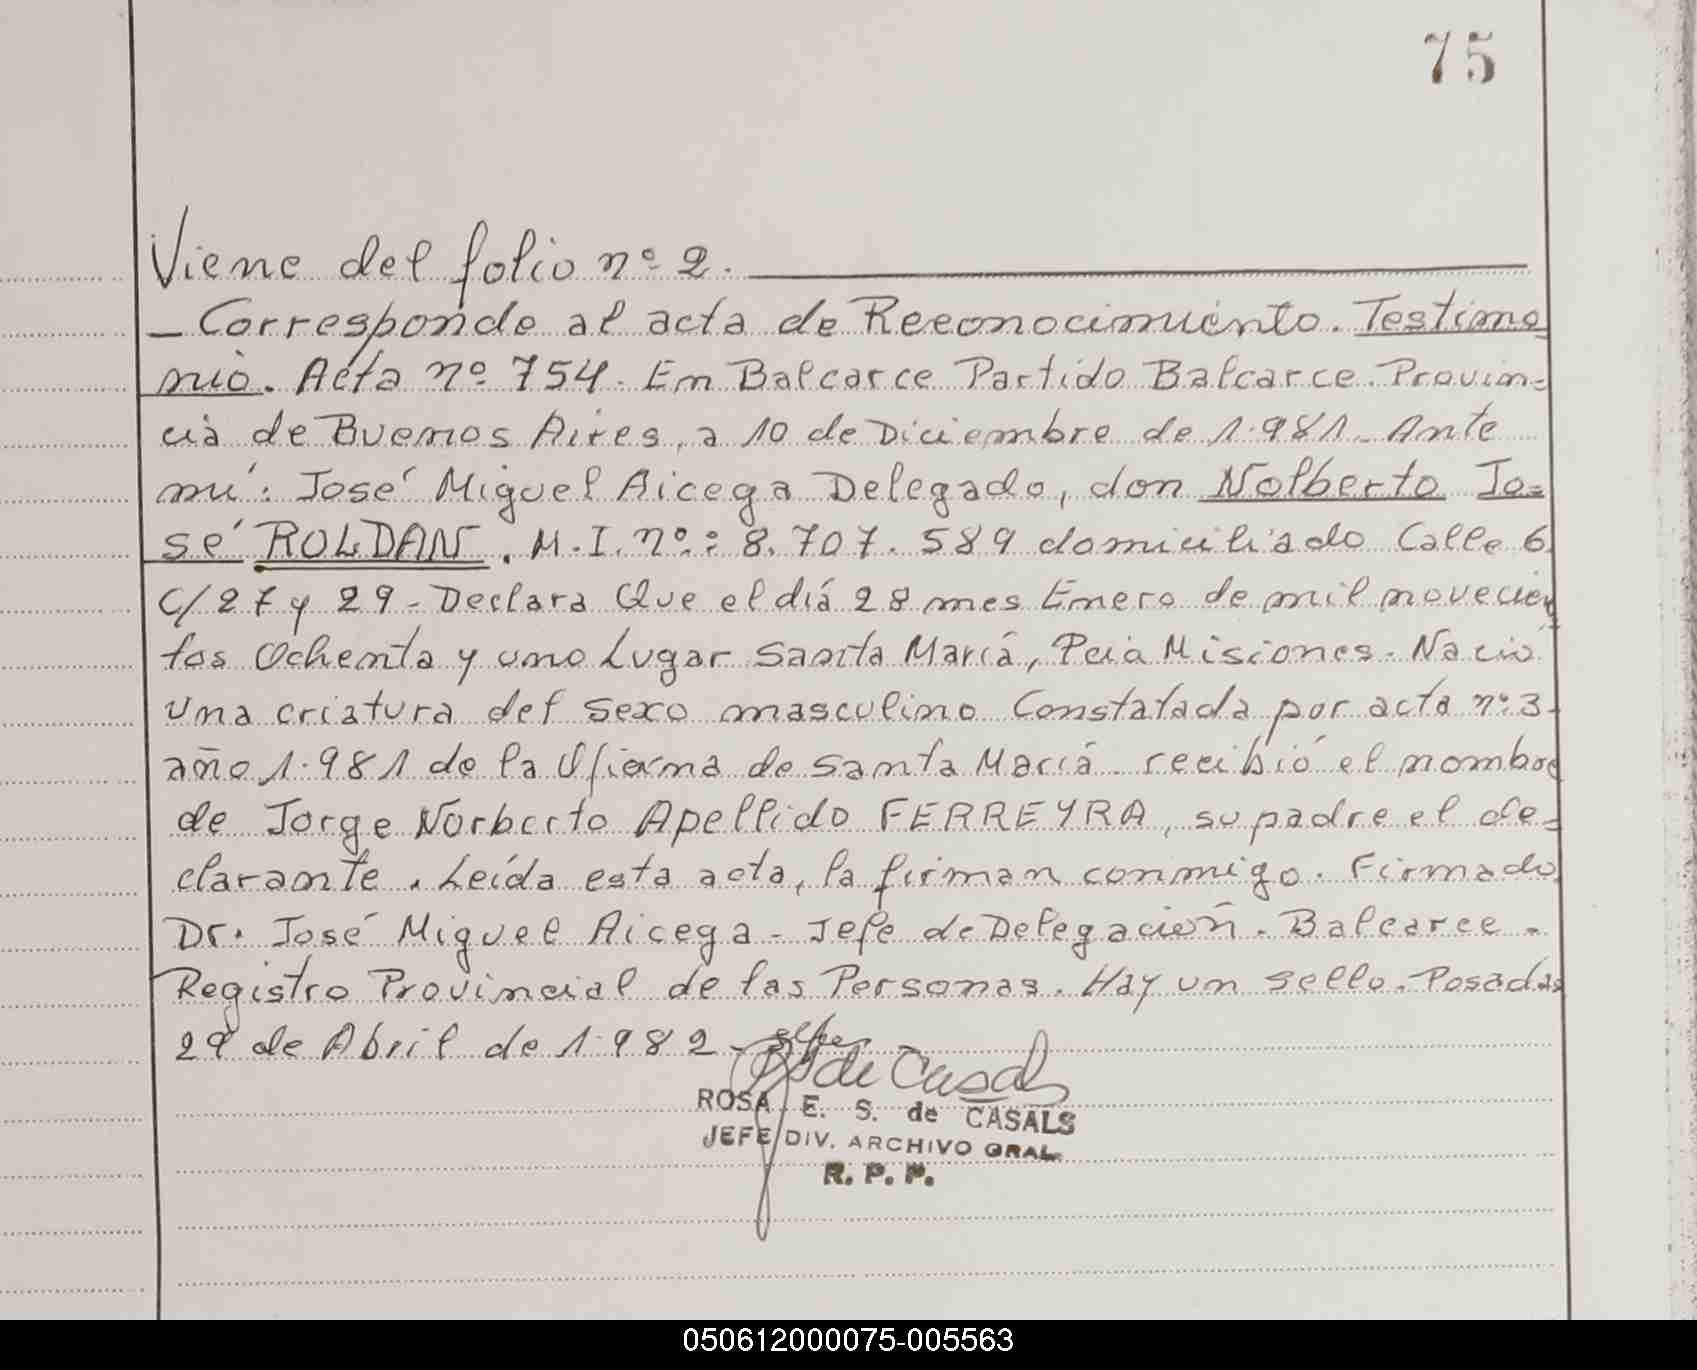 75
Viene del folio nº 2.
- Corresponde al acta de Reconocimiento. Testimo
nio. Acta nº 754. En Balcarce Partido Balcarce. Provin=
cia de Buenos Aires, a 10 de Diciembre de 1.981. Ante
mí: José Miguel Aicega Delegado, don Nolberto Jo=
sé ROLDAN. M.I. nº: 8.707.589 domiciliado Calle 6
C/27 y 29 - Declara Que el día 28 mes Enero de mil novecien
tos Ochenta y uno Lugar Santa María, Pcia Misiones. Nació
una criatura del sexo masculino Constatada por acta nº 3
año 1.981 de la Oficina de Santa María recibió el nombre
de Jorge Norberto Apellido FERREYRA, su padre el de=
clarante. Leída esta acta, la firman conmigo. Firmado
Dr. José Miguel Aicega - Jefe de Delegación. Balcarce.
Registro Provincial de las Personas. Hay un sello. Posadas
29 de Abril de 1.982
de Casals
ROSA E. S. de CASALS
JEFE DIV. ARCHIVO GRAL.
R. P. P.
050612000075-005563